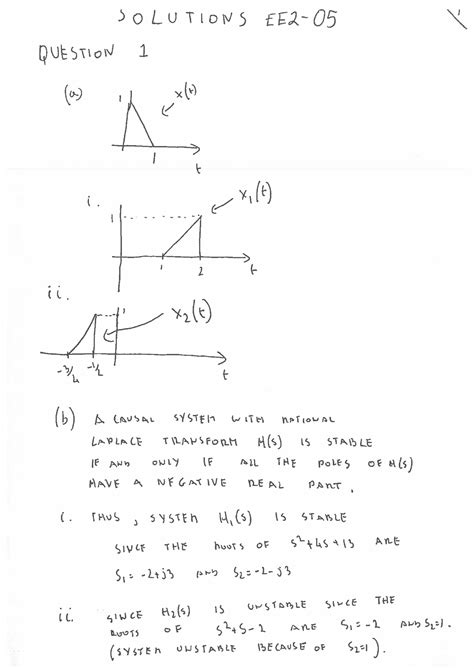 SOLUTIONS EE2-05
1
QUESTION 1
(a)
1
x(t)
1
t
i.
1
x₁(t)
1 2 t
ii.
1
x₂(t)
-3/4 -1/2
t
(b) A CAUSAL SYSTEM WITH RATIONAL
LAPLACE TRANSFORM H(s) IS STABLE
IF AND ONLY IF ALL THE POLES OF H(s)
HAVE A NEGATIVE REAL PART.
i. THUS, SYSTEM H₁(s) IS STABLE
SINCE THE ROOTS OF s²+4s+13 ARE
S₁=-2+j3 AND S₂=-2-j3
ii. SINCE H₂(s) IS UNSTABLE SINCE THE
ROOTS OF s²+s-2 ARE S₁=-2 AND S₂=1.
(SYSTEM UNSTABLE BECAUSE OF S₂=1).